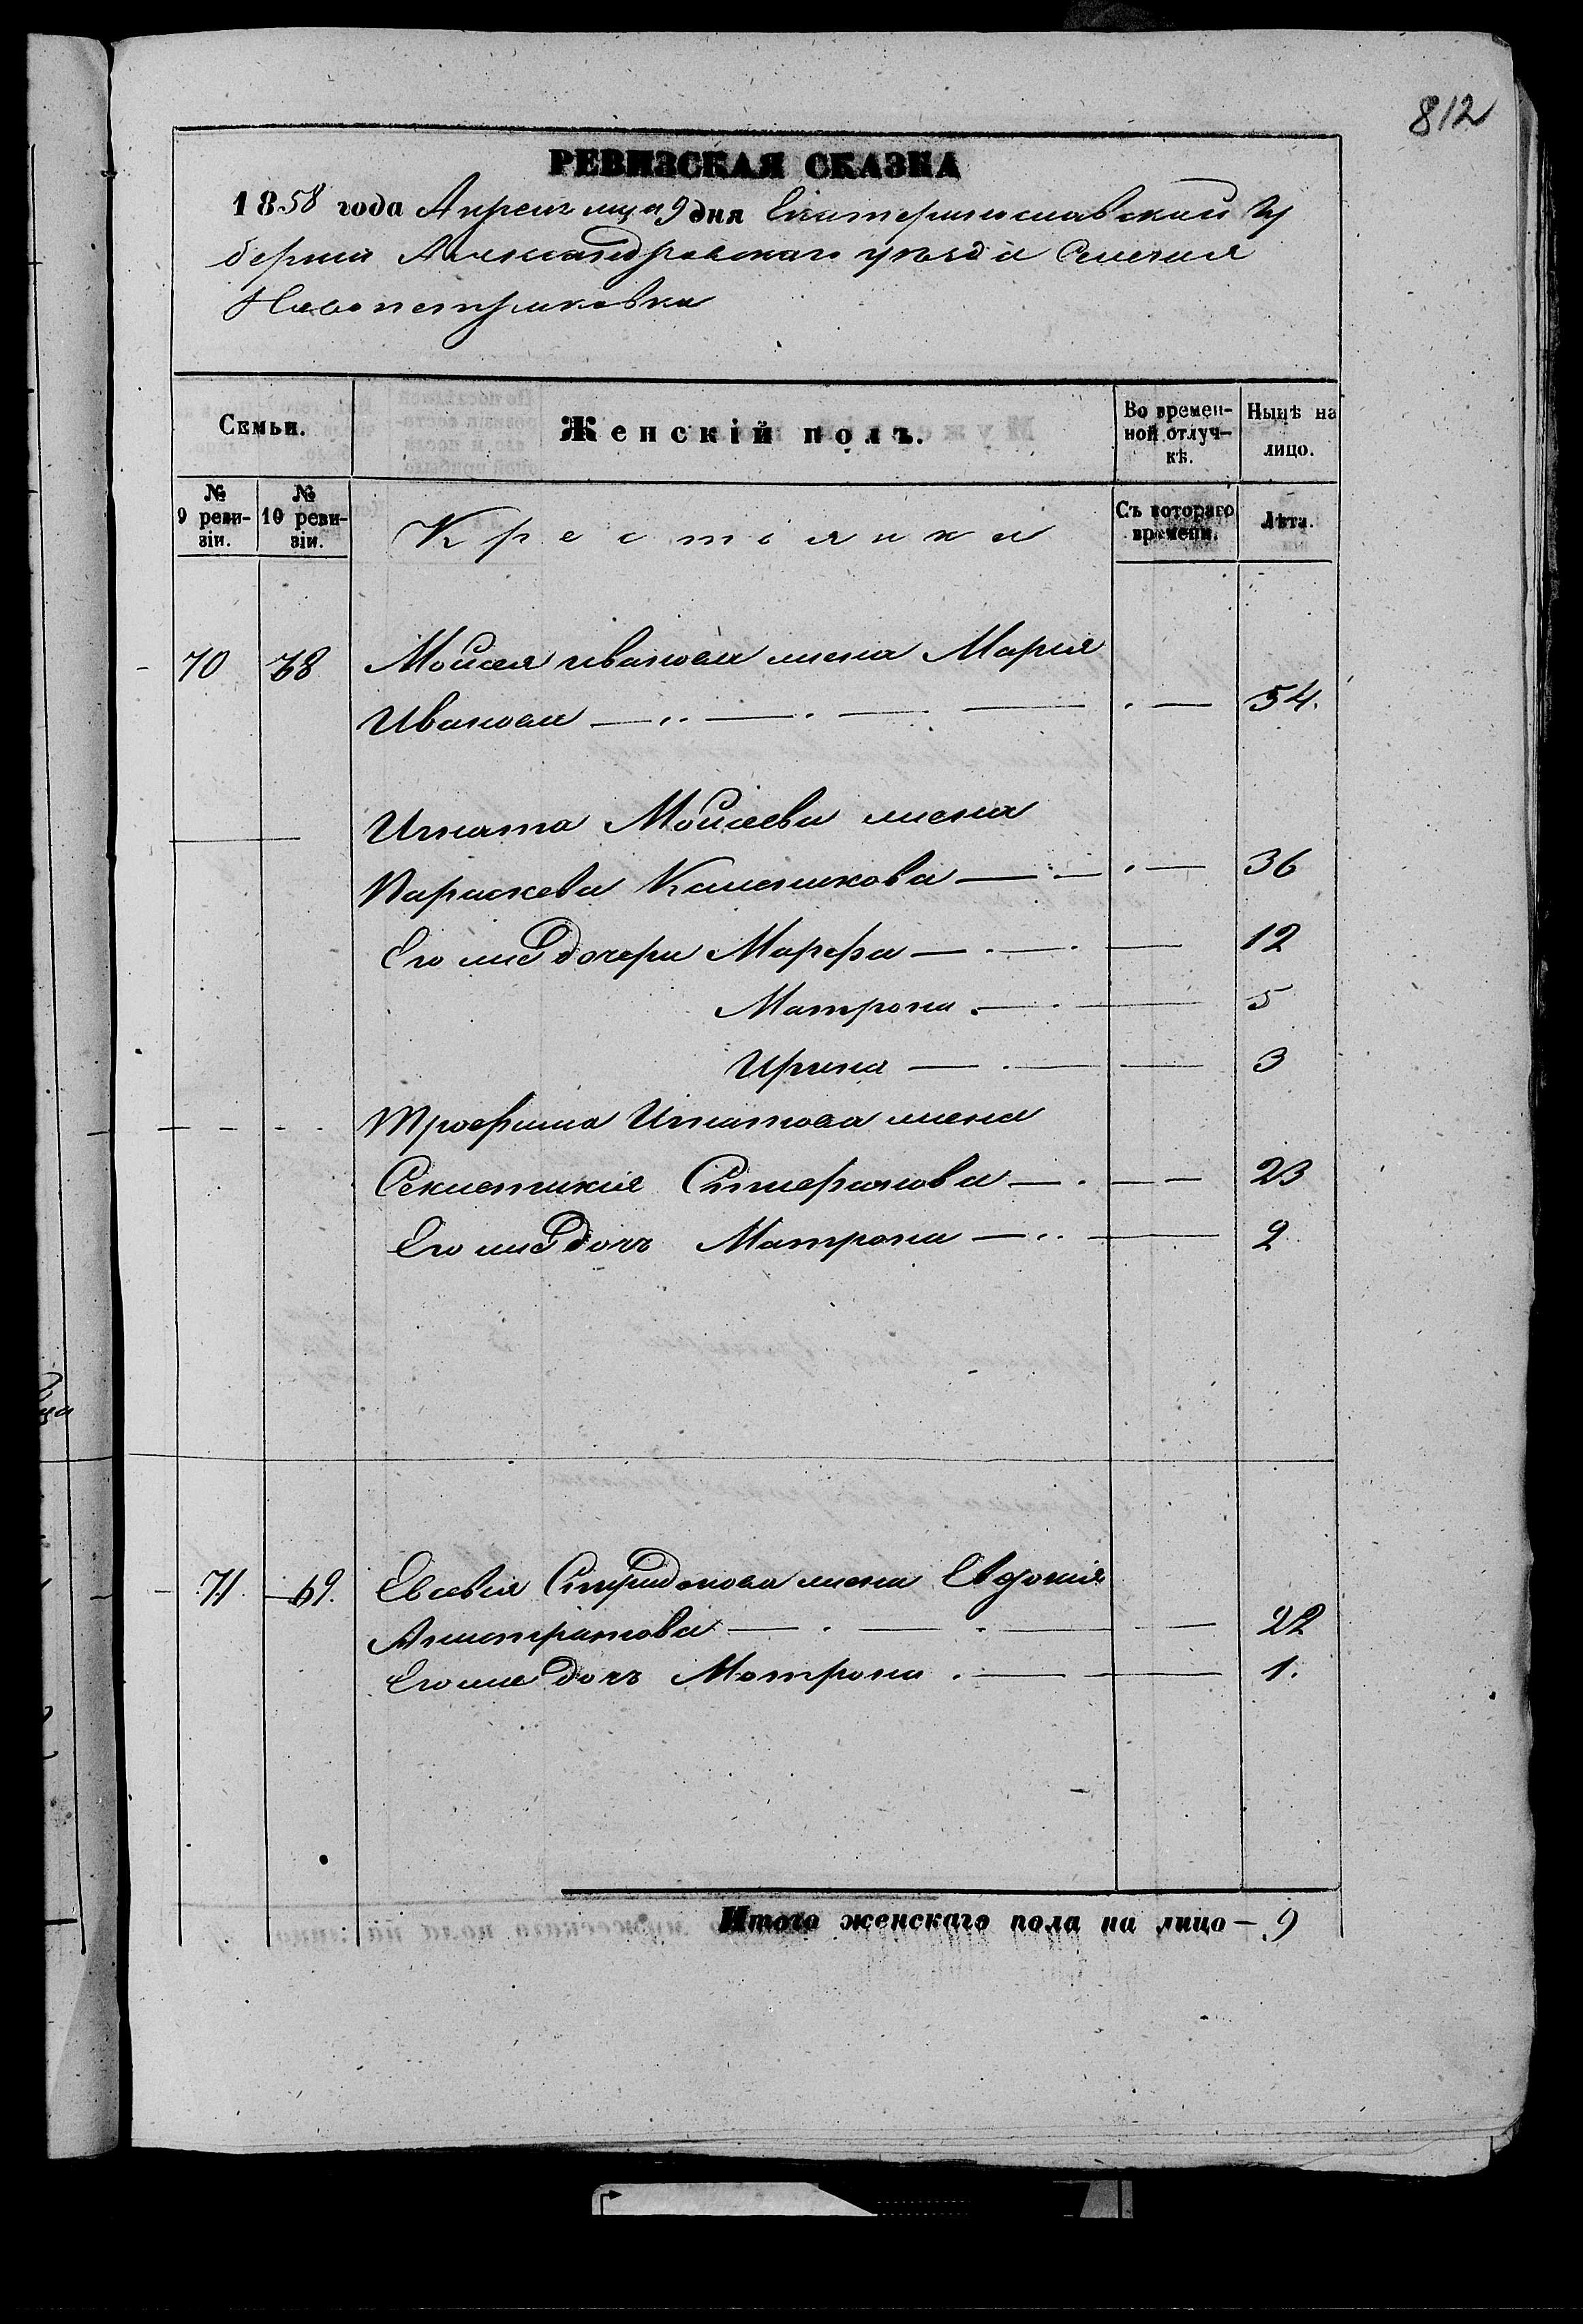 812
РЕВИЗСКАЯ СКАЗКА
1858 года Апреля мца 9 дня Екатеринославской Гу
берніи Александровскаго уезда Селенія
Новопетриковки
Семьи.
Женскій полъ.
Во времен-
ной отлуч-
кѣ.
Нынѣ на
лицо.
№
9 реви-
зіи.
№
10 реви-
зіи.
Крестьянки
Съ котораго
времени.
Лѣта.
70 68 Моисея Иванова жена Марія
Иванова — 54.
Игната Моисеева жена
Параскева Каленикова — 36
Его же дочери Марфа — 12
Матрона — 5
Ирина — 3
Трофима Игнатова жена
Секлетикія — 23
Его же дочь Матрона — 2
71. 69. Евсевія Спиридонова жена Евдокія
22
Его же дочь Матрона — 1.
Итого женскаго пола на лицо — 9